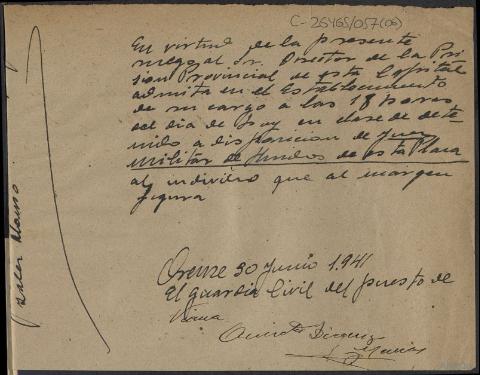 C-25465/057(06)
En virtud de la presente
ruego al Sr. Director de la Pri
sion Provincial de esta Capital
admita en el Establecimiento
de su cargo a las 18 horas
del dia de hoy en clase de dete
nido a disposicion de Juez
militar de de esta Plaza
al individuo que al margen
figura
Orense 30 junio 1.941
El guardia Civil del puesto de
Alonso